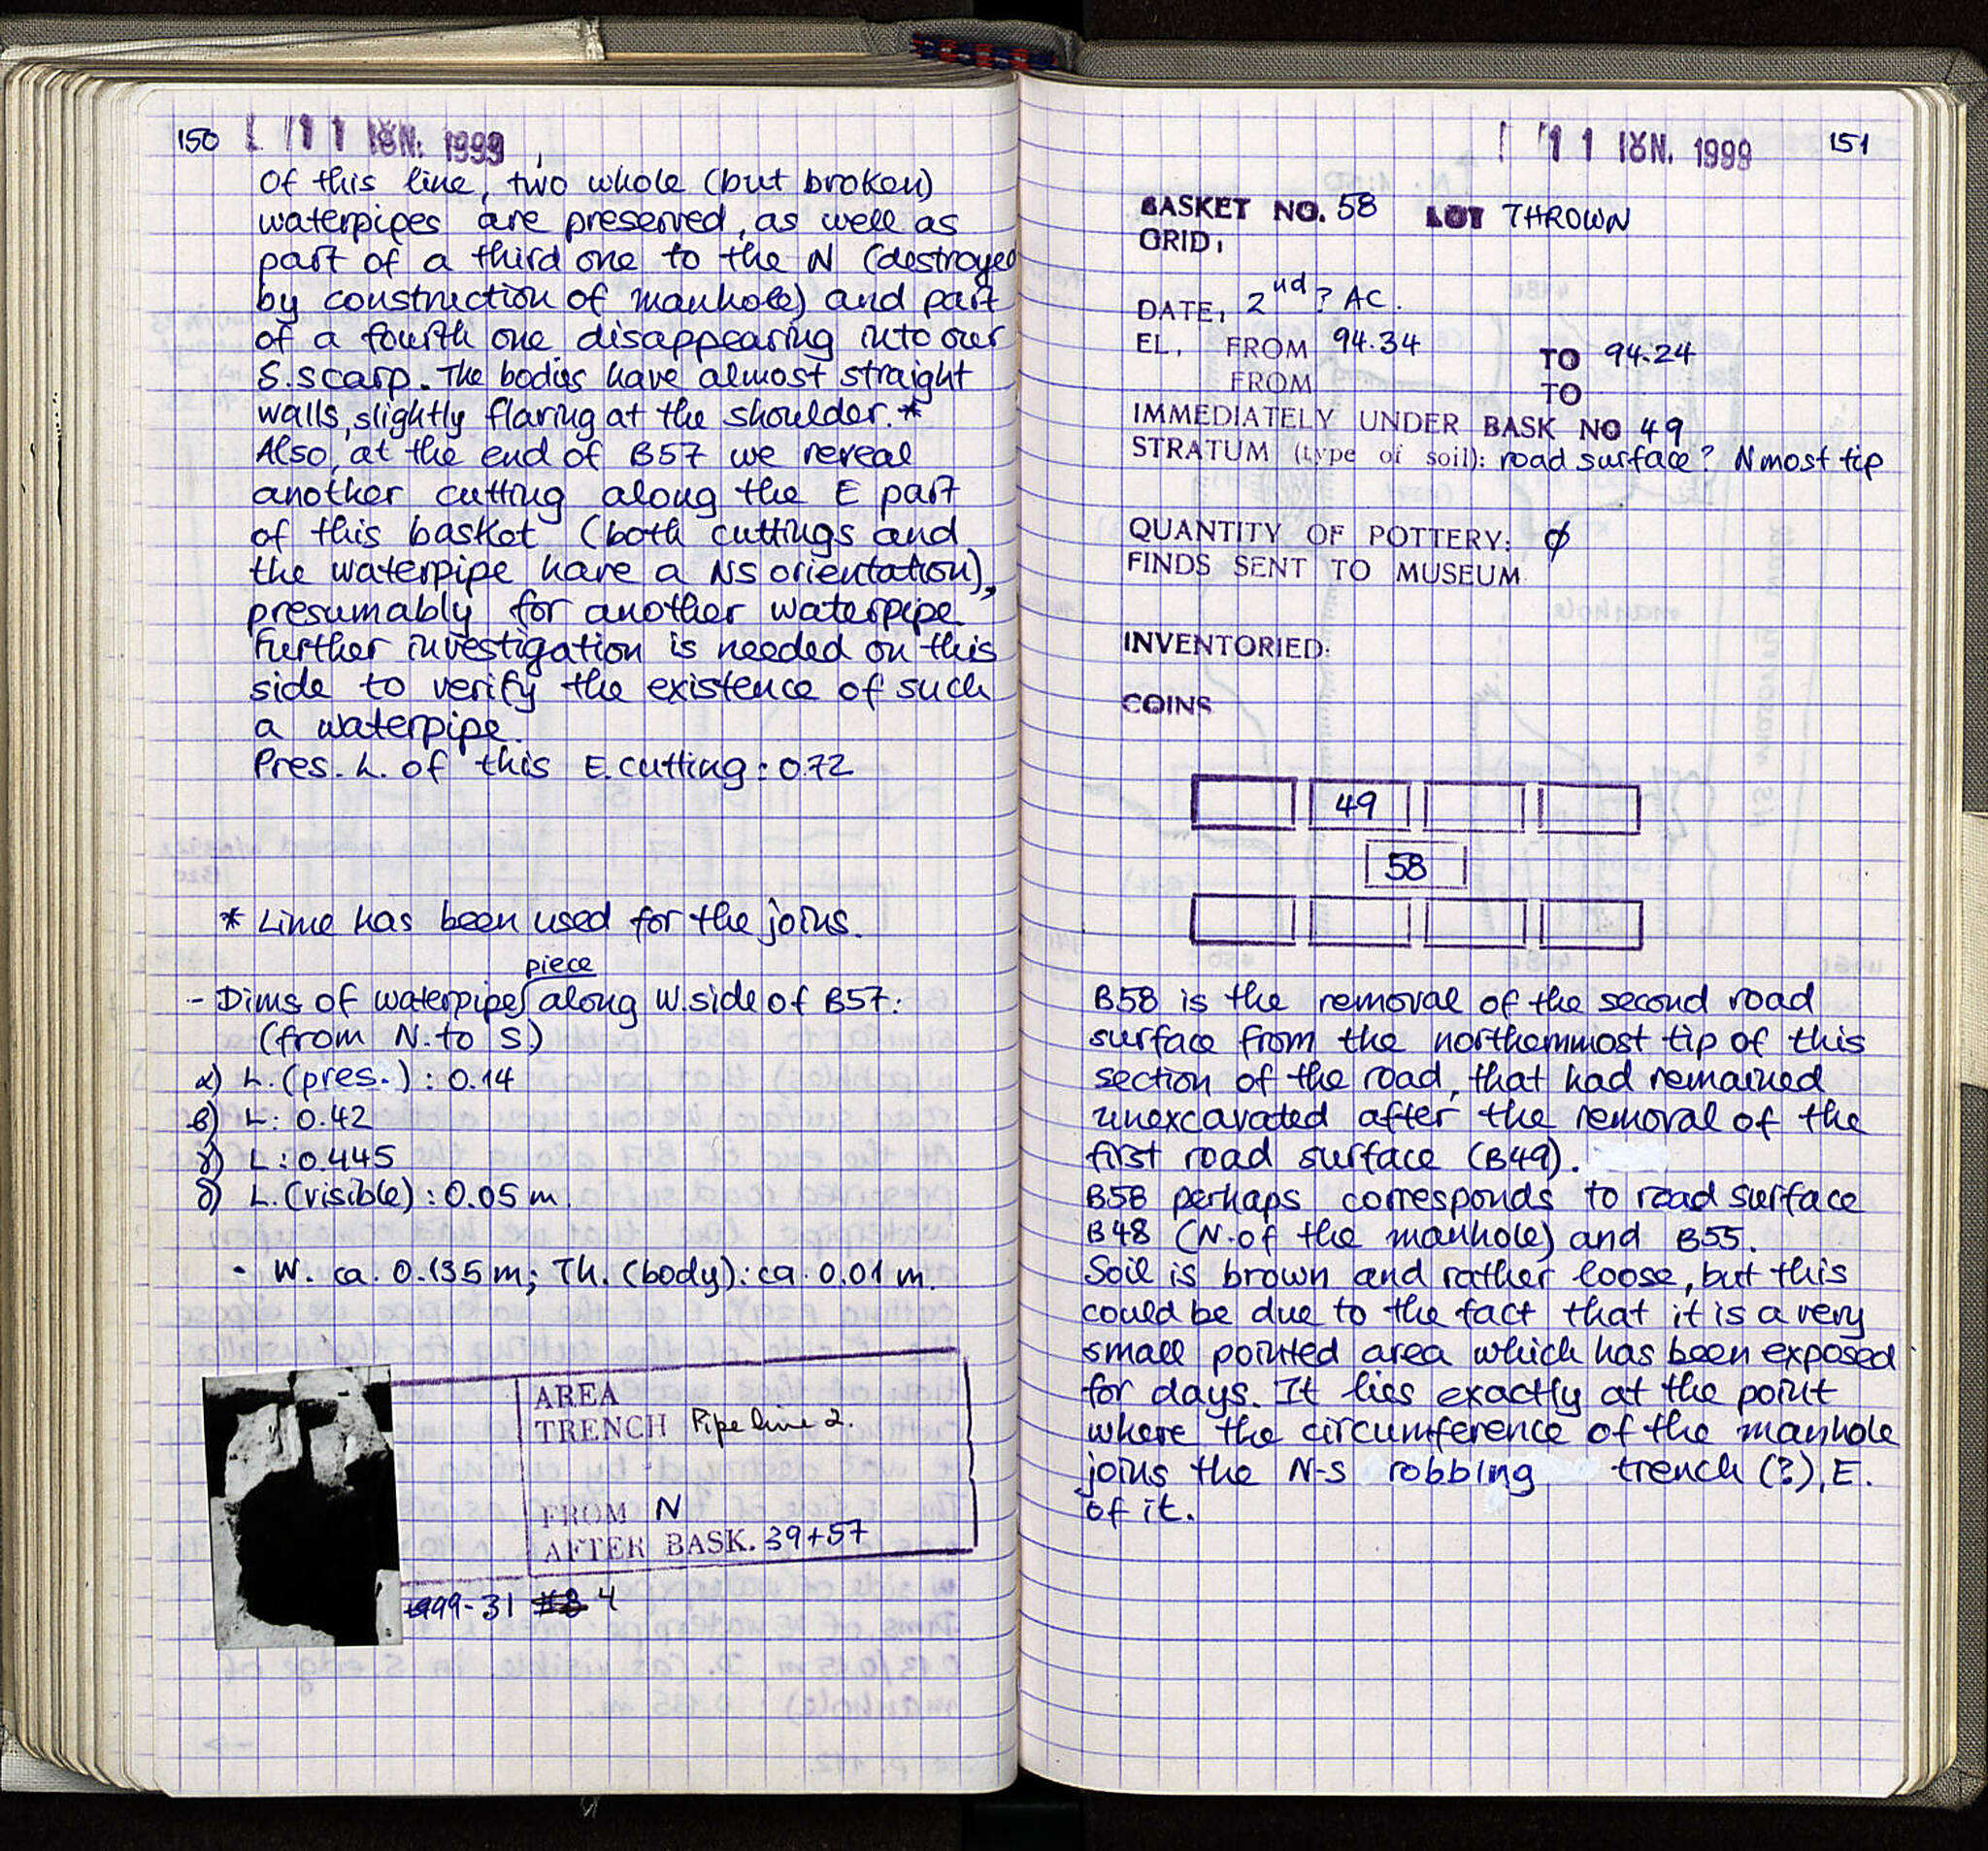 150 11 ΙΟΥΝ. 1999
Of this line, two whole (but broken)
waterpipes are preserved, as well as
part of a third one to the N (destroyed
by construction of manhole) and part
of a fourth one disappearing into our
S.scarp. The bodies have almost straight
walls, slightly flaring at the shoulder.*
Also, at the end of B57 we reveal
another cutting along the E part
of this basket (both cuttings and
the waterpipe have a NS orientation),
presumably for another waterpipe.
Further investigation is needed on this
side to verify the existence of such
a waterpipe.
Pres. L. of this E.cutting: 0.72
* Lime has been used for the joins.
piece
- Dims of waterpipes along W.side of B57:
(from N. to S)
α) L. (pres.): 0.14
β) L: 0.42
γ) L: 0.445
δ) L. (visible): 0.05 m.
• W. ca. 0.135 m; Th. (body): ca. 0.01 m.
AREA
TRENCH Pipe line 2.
FROM N
AFTER BASK. 39+57
1999-31 #3 4
11 ΙΟΥΝ. 1999 151
BASKET NO. 58 LOT THROWN
GRID:
DATE, 2nd? AC.
EL, FROM 94.34 TO 94.24
FROM TO
IMMEDIATELY UNDER BASK NO 49
STRATUM (type of soil): road surface? Nmost tip
QUANTITY OF POTTERY: ∅
FINDS SENT TO MUSEUM
INVENTORIED:
COINS
49
58
B58 is the removal of the second road
surface from the northernmost tip of this
section of the road, that had remained
unexcavated after the removal of the
first road surface (B49).
B58 perhaps corresponds to road surface
B48 (N. of the manhole) and B55.
Soil is brown and rather loose, but this
could be due to the fact that it is a very
small pointed area which has been exposed
for days. It lies exactly at the point
where the circumference of the manhole
joins the N-S robbing trench (?), E.
of it.